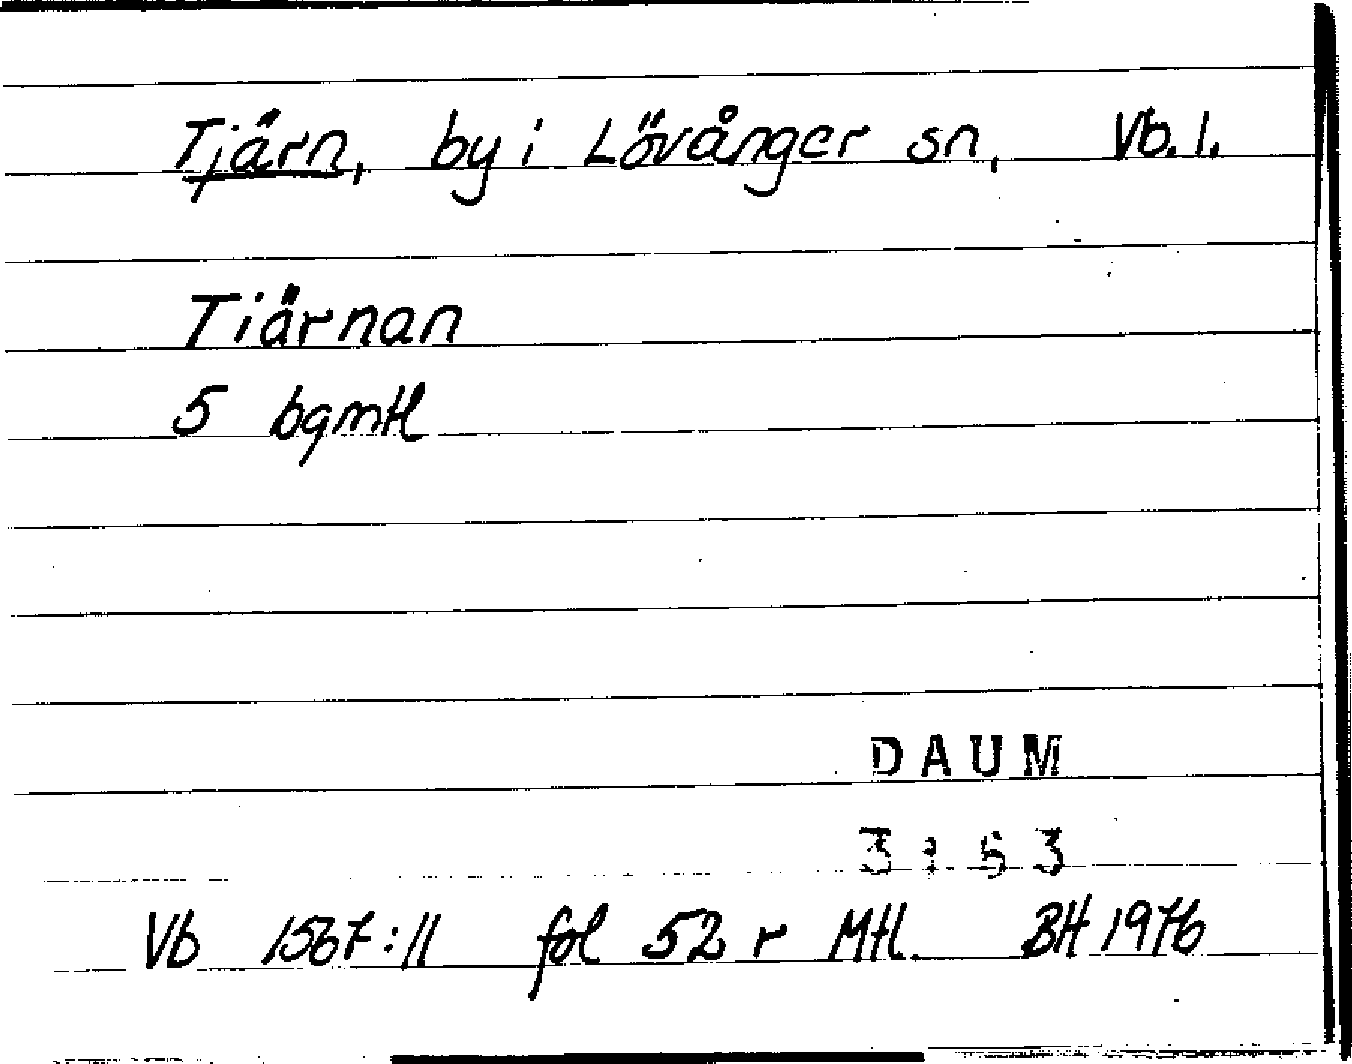 Tjärn, by i Lövånger sn, Vb. l.
Tiärnan
5 bgmtl
DAUM
3:53
Vb 1567:11 fol 52 r Mtl. BH 1976